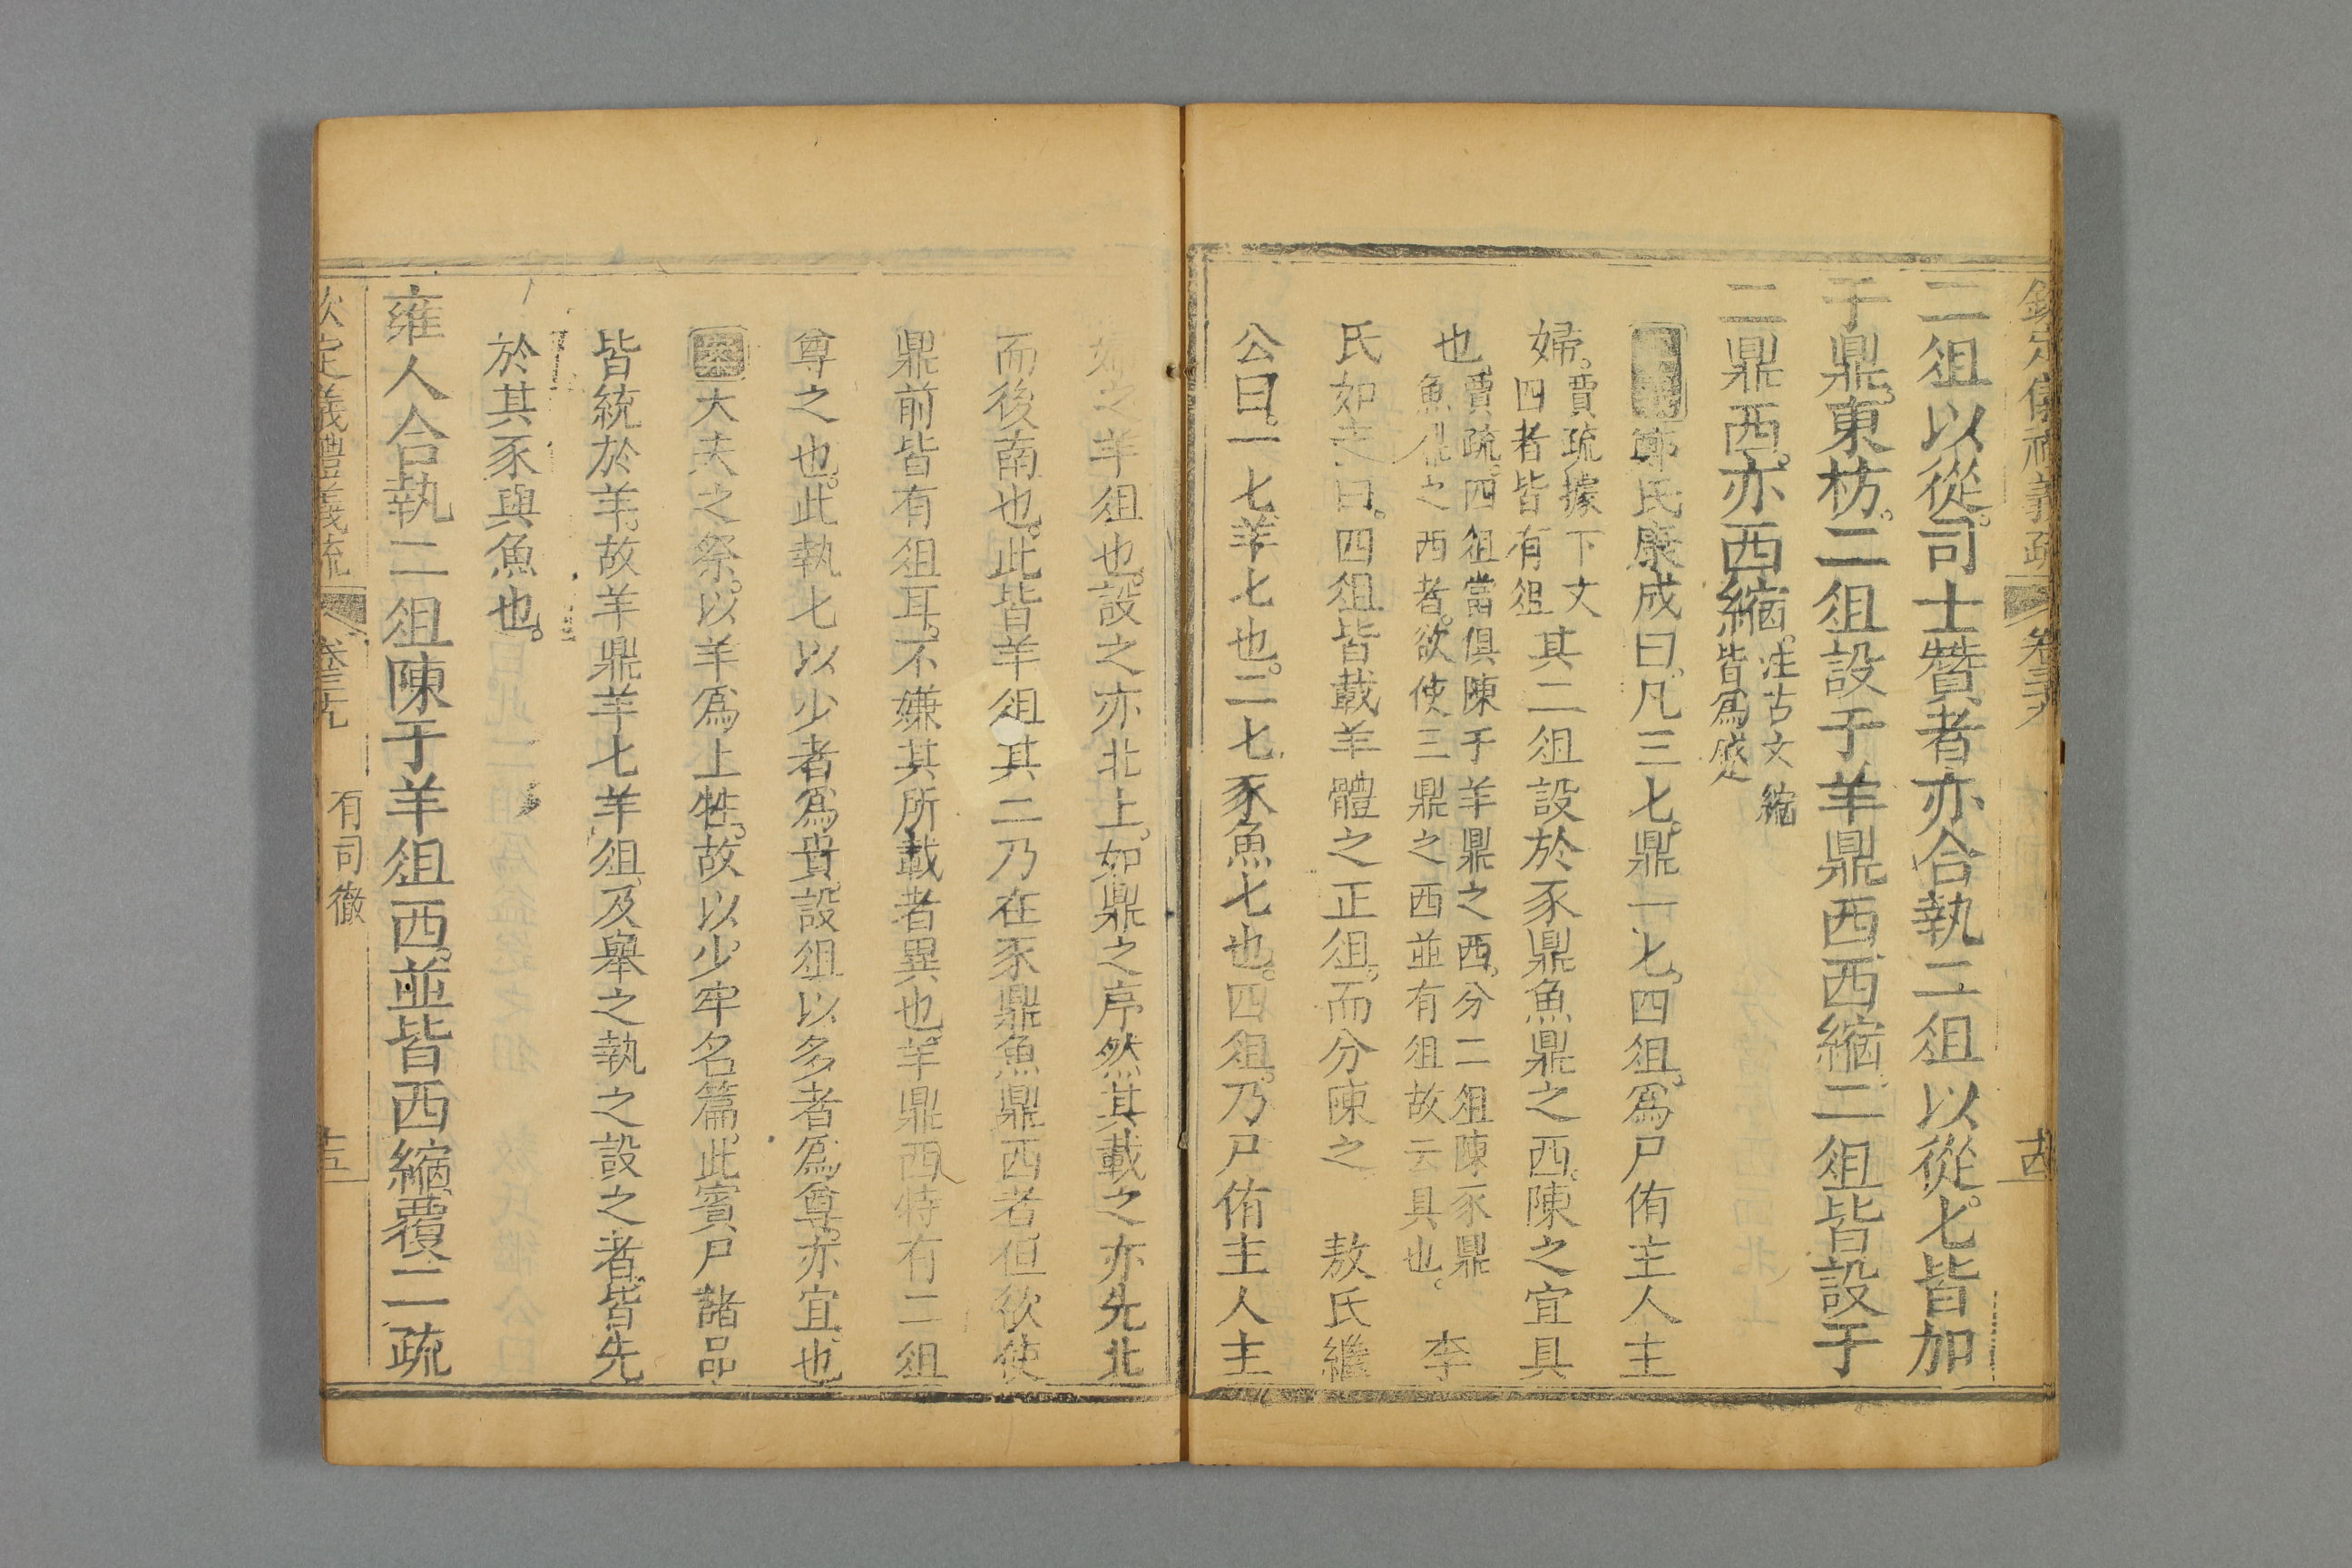 欽定儀禮義疏 卷三十九 十四
二俎以從。司士贊者亦合執二俎以從。匕皆加
于鼎。東枋。二俎設于羊鼎西西縮。二俎皆設于
二鼎西。亦西縮。注古文縮皆爲蹙
鄭氏康成曰。凡三匕。鼎一匕。四俎。爲尸侑主人主
婦。賈疏據下文四者皆有俎其二俎設於豕鼎魚鼎之西。陳之宜具
也賈疏。四俎當俱陳于羊鼎之西。分二俎陳豕鼎魚鼎之西者。欲使三鼎之西並有俎故云具也。 李
氏如圭曰。四俎皆載羊體之正俎。而分陳之 敖氏繼
公曰。一匕羊匕也。二匕豕魚匕也。四俎。乃尸侑主人主
婦之羊俎也。設之亦北上。如鼎之序然。其載之亦先北
而後南也。此皆羊俎其二乃在豕鼎魚鼎西者。但欲使
鼎前皆有俎耳。不嫌其所載者異也。羊鼎西特有二俎
尊之也。此執匕以少者爲貴。設俎以多者爲尊。亦宜也
案大夫之祭。以羊爲上牲。故以少牢名篇。此賓尸諸品
皆統於羊。故羊鼎羊匕羊俎。及舉之執之設之者。皆先
於其豕與魚也。
雍人合執二俎陳于羊俎西。並皆西縮覆二疏
欽定儀禮義疏 卷三十九 有司徹 十五